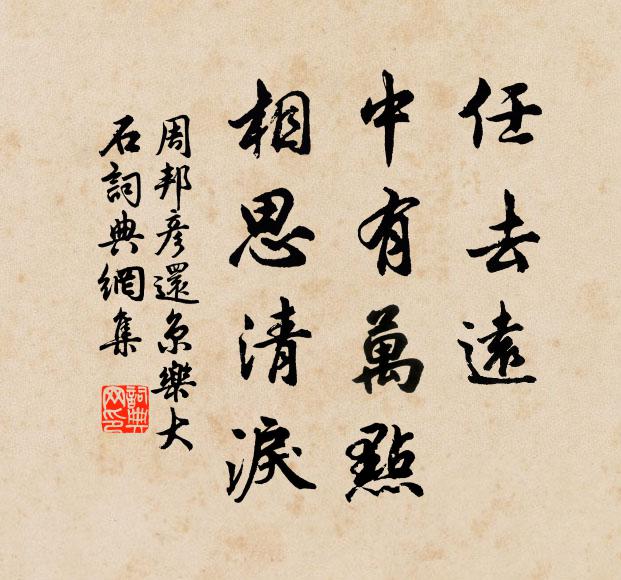 任去遠
中有萬點
相思清淚
周邦彥還京樂大
石詞典網集
詞典網印